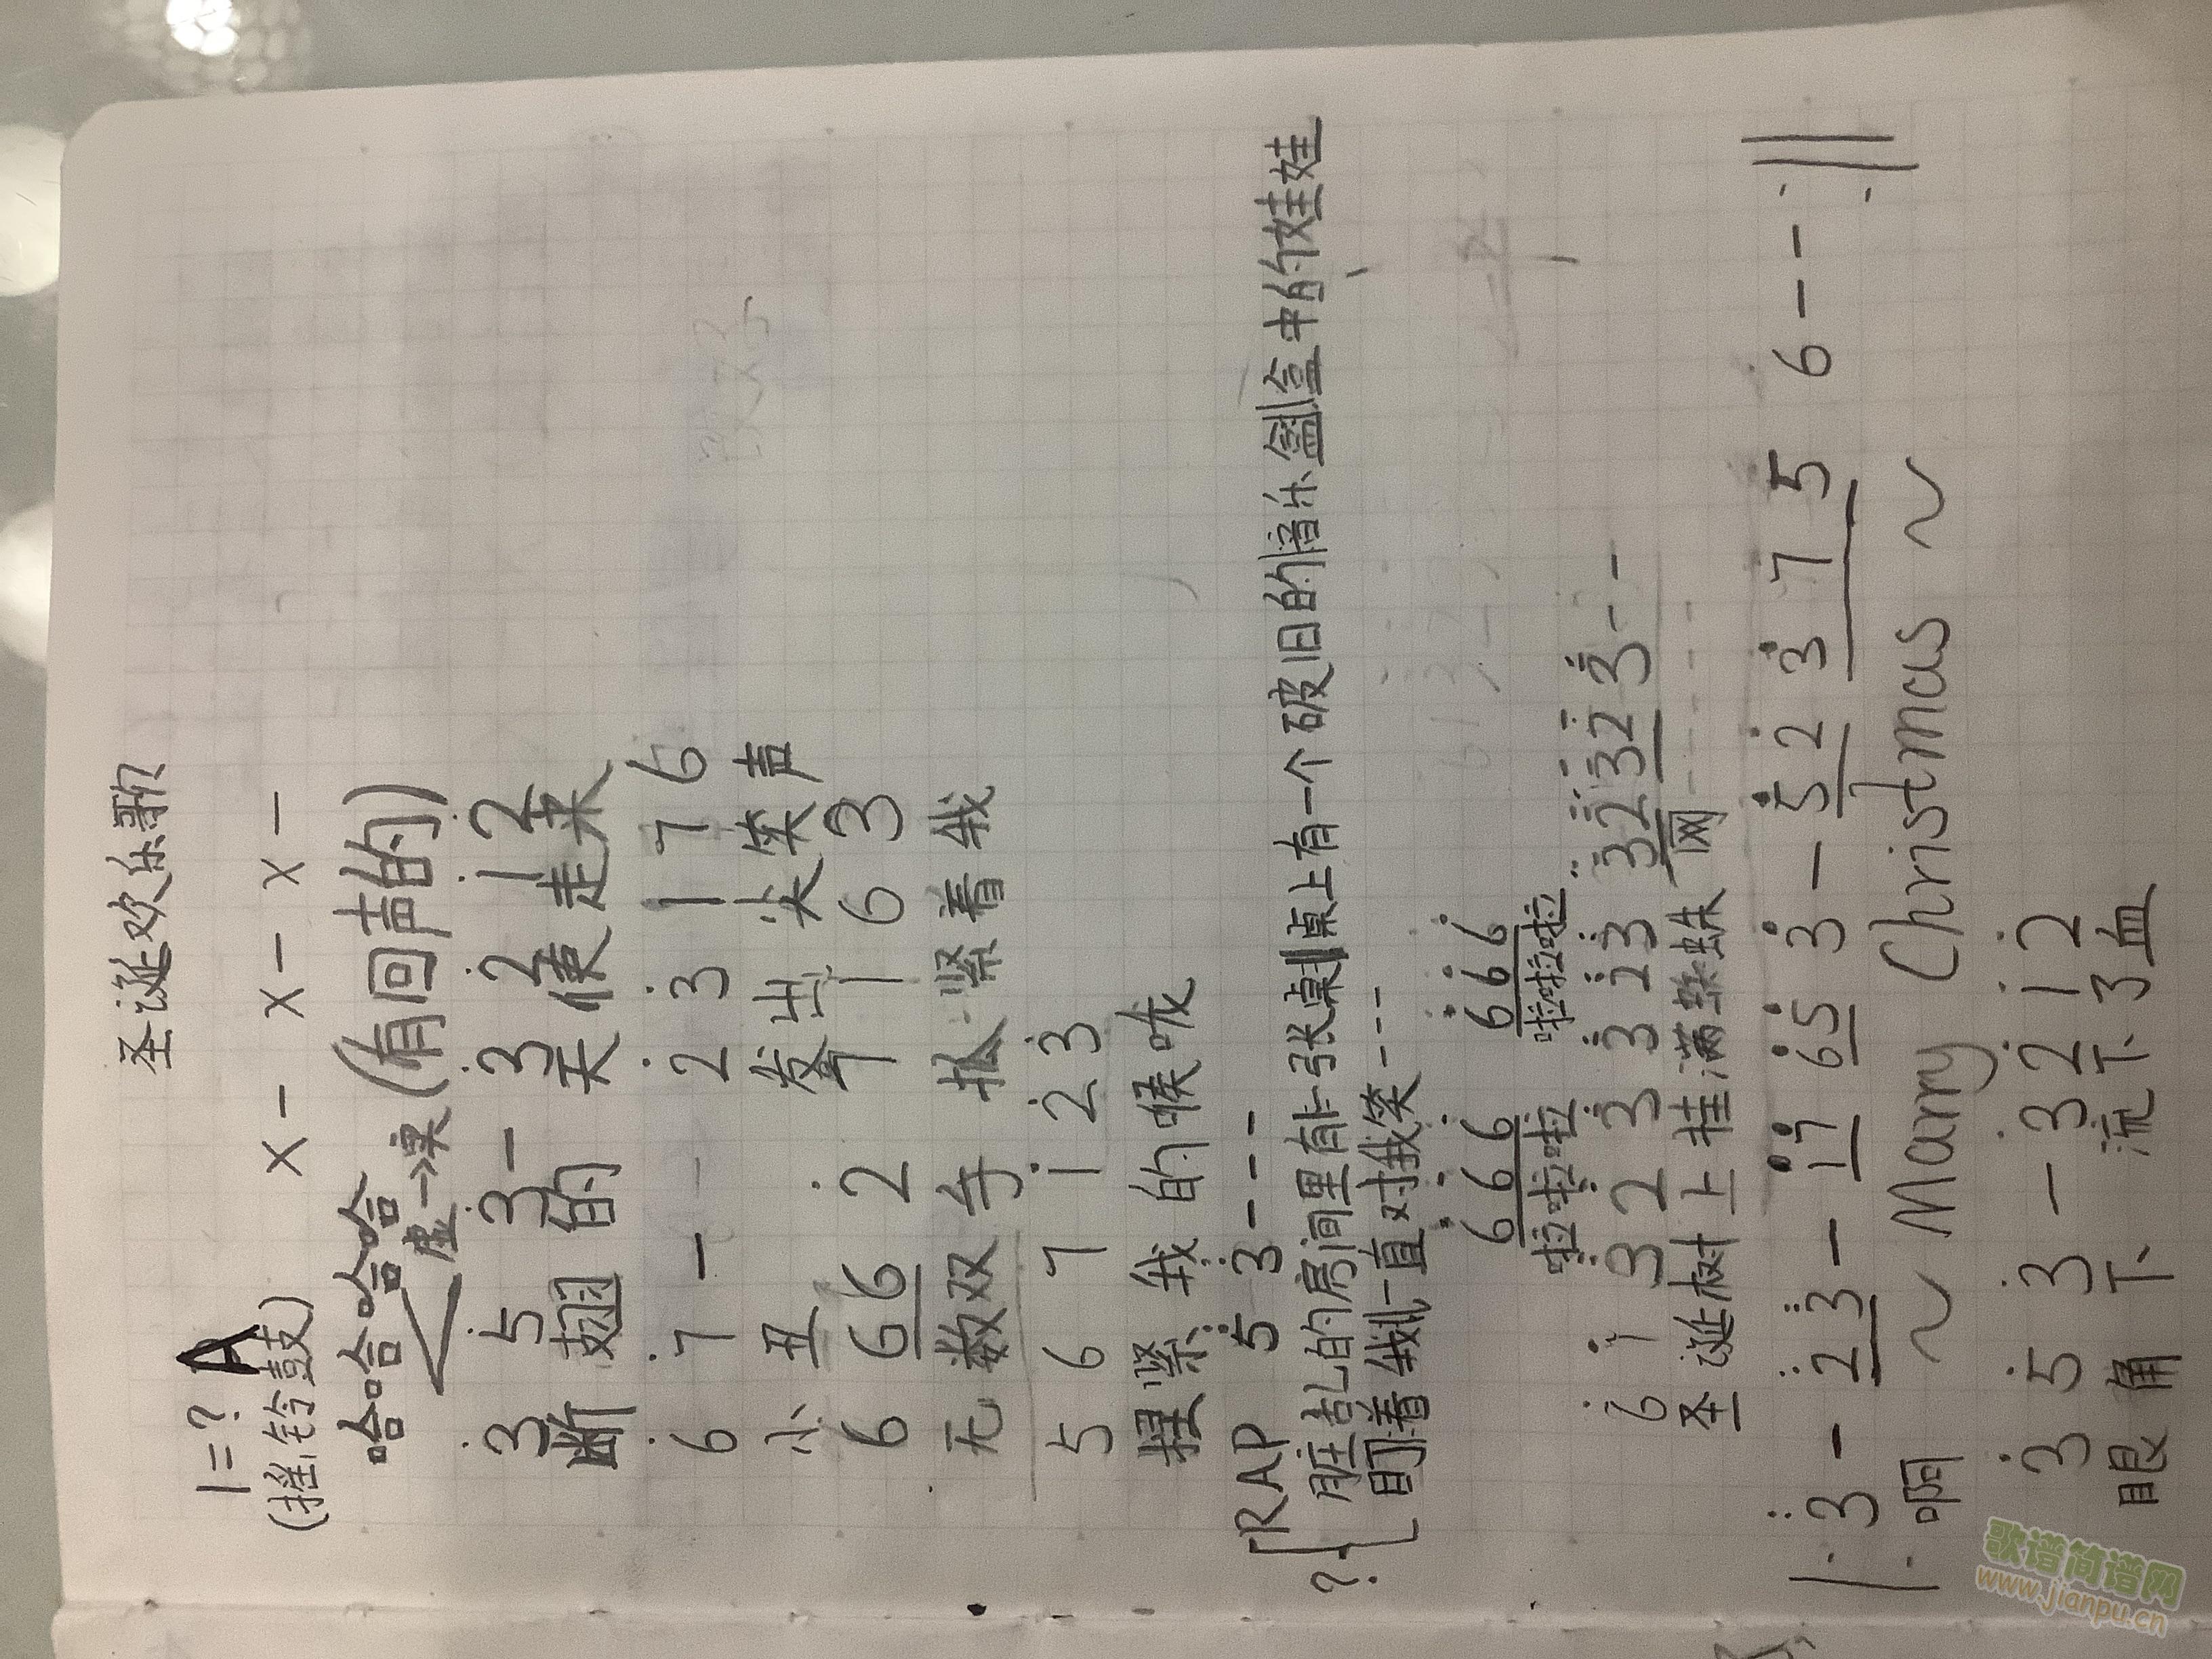 圣诞欢乐歌
1=? A
(摇铃鼓) x - x - x - x -
哈哈哈哈哈 (有回声的)
虚→实
3 5 3 - 3 2 1 2
断翅的 天使走来
6 7 - 2 3 1 7 6
小丑 发出尖笑声
6 6 6 2 1 1 6 3
无数双手 抓紧着我
5 6 7 1 2 3
捏紧我的喉咙
RAP 5 3 - - -
?
脏乱的房间里有一张桌桌上有一个破旧的音乐盒盒中的娃娃
盯着我一直对我笑----
6 6 6 6 6 6
啦啦啦啦 啦啦啦啦
6 1 3 2 3 3 2 3 3 2 3 2 3 - -
圣诞树上挂满蜘蛛网-----
|: 3 - 2 3 - 1 7 6 5 3 - 5 2 3 7 5 6 - - :||
啊 ~ Marry Christmas ~
3 5 3 - 3 2 1 2
眼角下 流下了血
歌谱简谱网
www.jianpu.cn